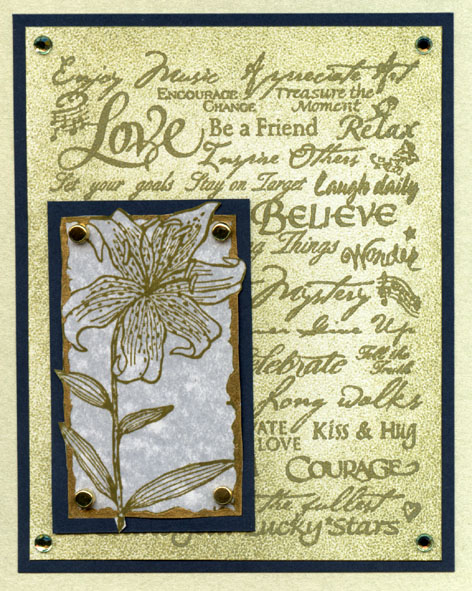 Enjoy Music Appreciate Art
ENCOURAGE CHANGE
Treasure the Moment
LOVE Be a Friend Relax
Inspire Others
Set your goals Stay on Target Laugh daily
BELIEVE
Things Wonder
Mystery
Give Up
Tell the Truth
Long walks
LOVE Kiss & Hug
COURAGE
the fullest
Lucky Stars